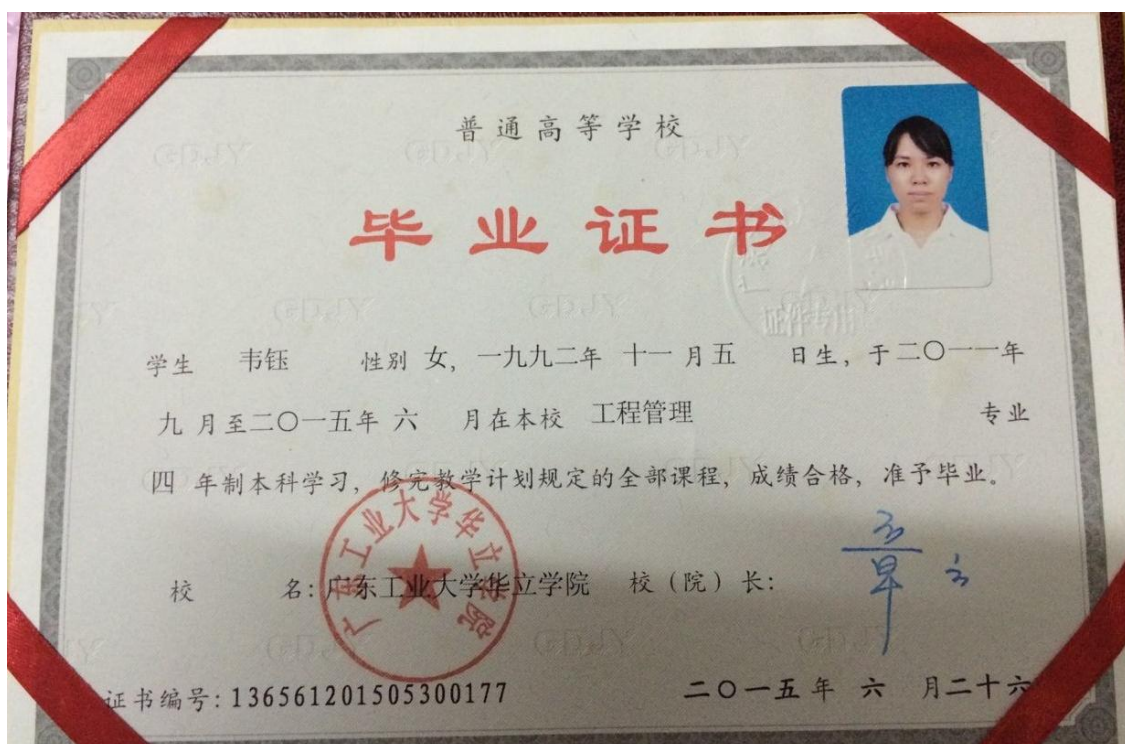 普通高等学校
毕业证书
证件专用
学生 韦钰 性别 女, 一九九二年 十一 月五 日生, 于二〇一一年
九 月至二〇一五年 六 月在本校 工程管理 专业
四 年制本科学习, 修完教学计划规定的全部课程, 成绩合格, 准予毕业。
广东工业大学华立学院
校 名: 广东工业大学华立学院 校（院）长:
证书编号: 136561201505300177 二〇一五年 六 月二十六
GDJY